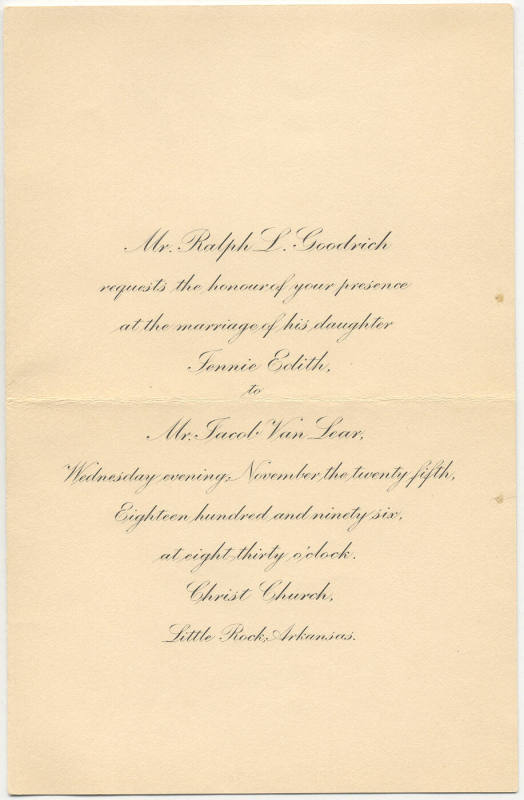 Mr. Ralph L. Goodrich
requests the honour of your presence
at the marriage of his daughter
Jennie Edith,
to
Mr. Jacob Van Lear,
Wednesday evening, November the twenty fifth,
Eighteen hundred and ninety six,
at eight thirty o'clock.
Christ Church,
Little Rock, Arkansas.